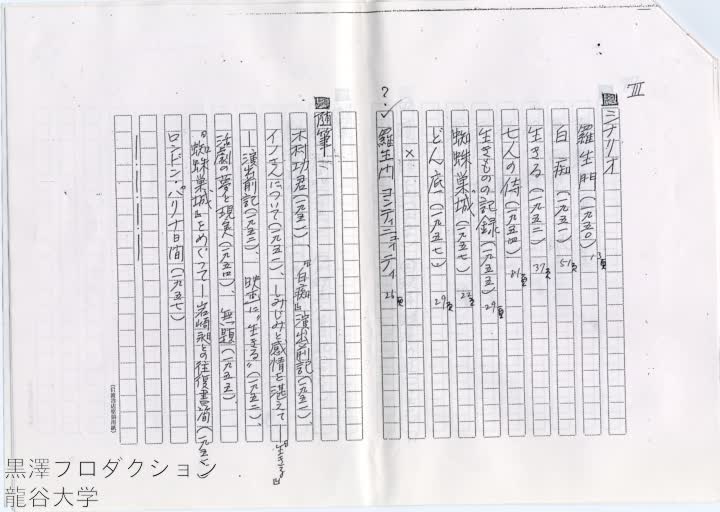 III
シナリオ
羅生門(一九五〇)
白痴(一九五一) 51頁
生きる(一九五二) 37頁
七人の侍(一九五四) 81頁
生きものの記録(一九五五) 29頁
蜘蛛巣城(一九五七) 23頁
どん底(一九五七) 29頁
×
? 羅生門 コンティニュイティ 26頁
随筆
木村功君(一九五一)、『白痴』演出前記(一九五一)、
イノさんについて(一九五二)、しみじみと感情を湛えて―『生きる』
―演出前記(一九五二)、映画に"生きる"(一九五二)、
活劇の夢と現実(一九五四)、無題(一九五五)、
『蜘蛛巣城』をめぐって―岩崎昶との往復書簡(一九五七)
ロンドン・パリ十日間(一九五七)
黒澤プロダクション
龍谷大学